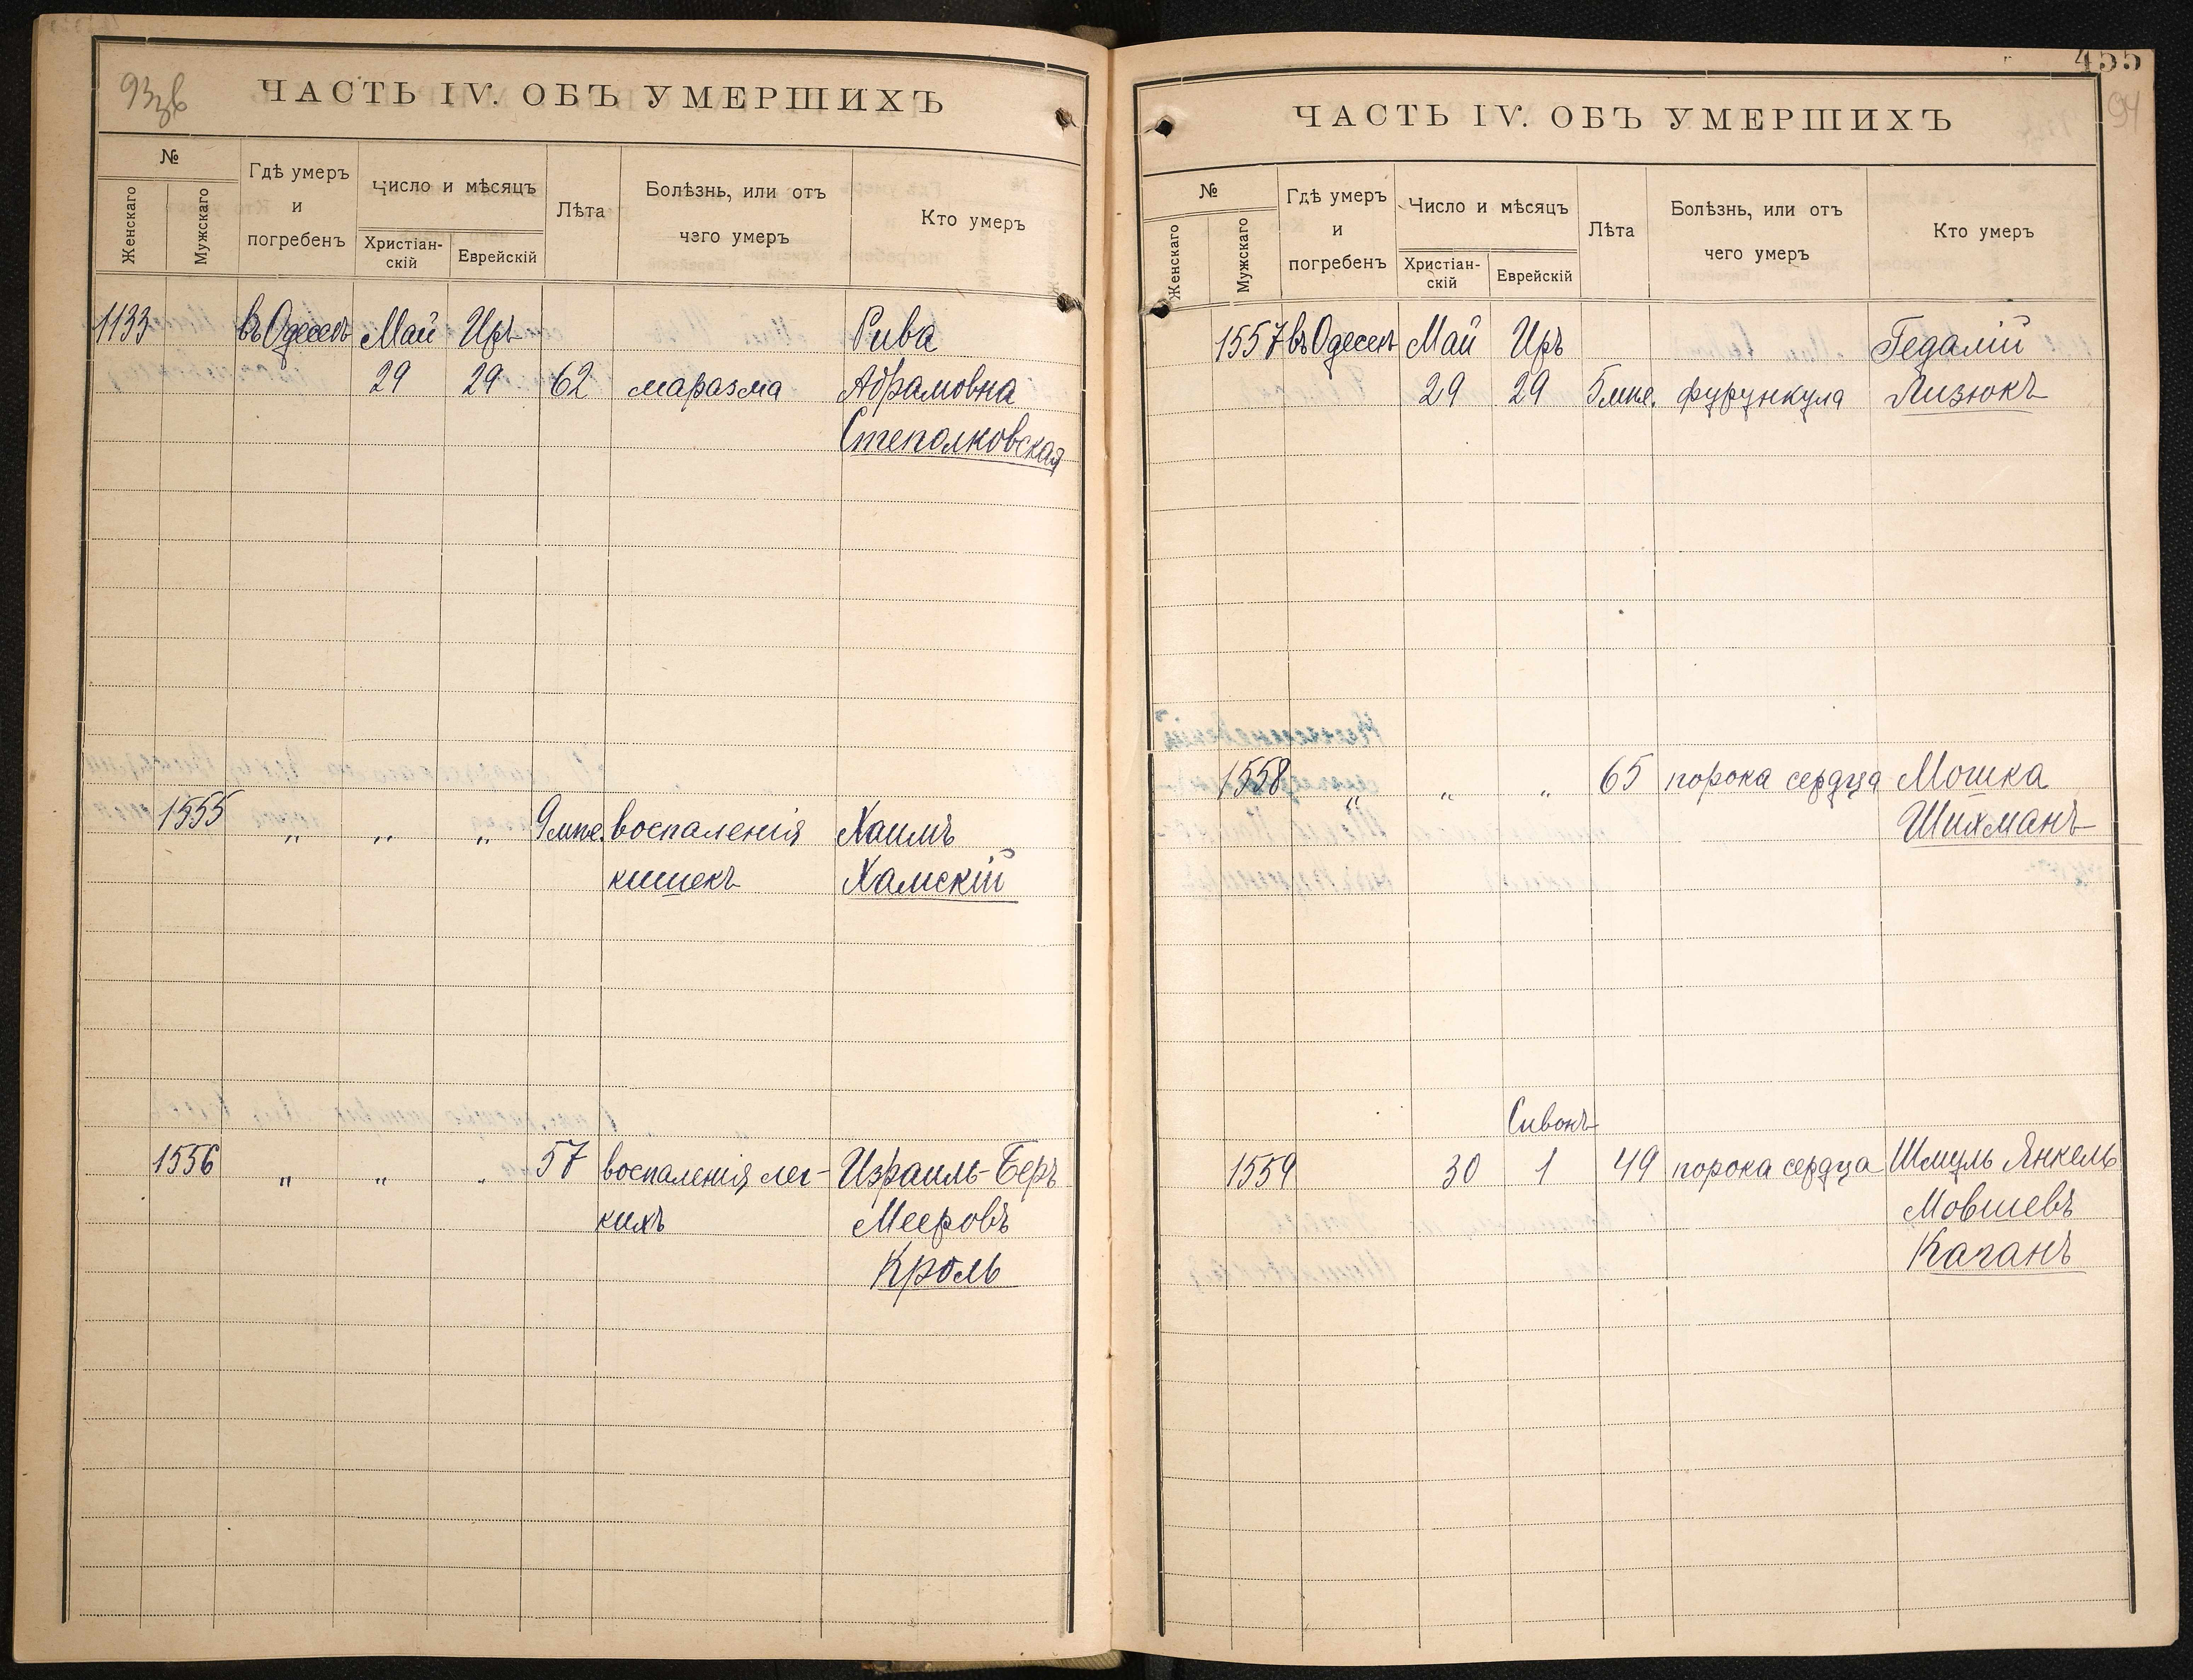 93 зв
ЧАСТЬ IV. ОБЪ УМЕРШИХЪ
№
Женскаго
Мужскаго
Гдѣ умеръ
и
погребенъ
Число и мѣсяцъ
Христіан-
скій
Еврейскій
Лѣта
Болѣзнь, или отъ
чего умеръ
Кто умеръ
1133 въ Одессѣ Май Иръ Рива
29 29 62 маразма Абрамовна
Степолковская
1555 „ „ „ 9 мце. воспаленія Хаимъ
кишекъ Хамскій
1556 „ „ „ 57 воспаленія лег- Израиль-Беръ
кихъ Мееровъ
Кроль
455
94
ЧАСТЬ IV. ОБЪ УМЕРШИХЪ
№
Женскаго
Мужскаго
Гдѣ умеръ
и
погребенъ
Число и мѣсяцъ
Христіан-
скій
Еврейскій
Лѣта
Болѣзнь, или отъ
чего умеръ
Кто умеръ
1557 въ Одессѣ Май Иръ Гедалій
29 29 5 мце. фурункула Лизюкъ
1558 „ „ „ 65 порока сердца Мошка
Шихманъ
Сивонъ
1559 30 1 49 порока сердца Шмуль Янкель
Мовшевъ
Каганъ